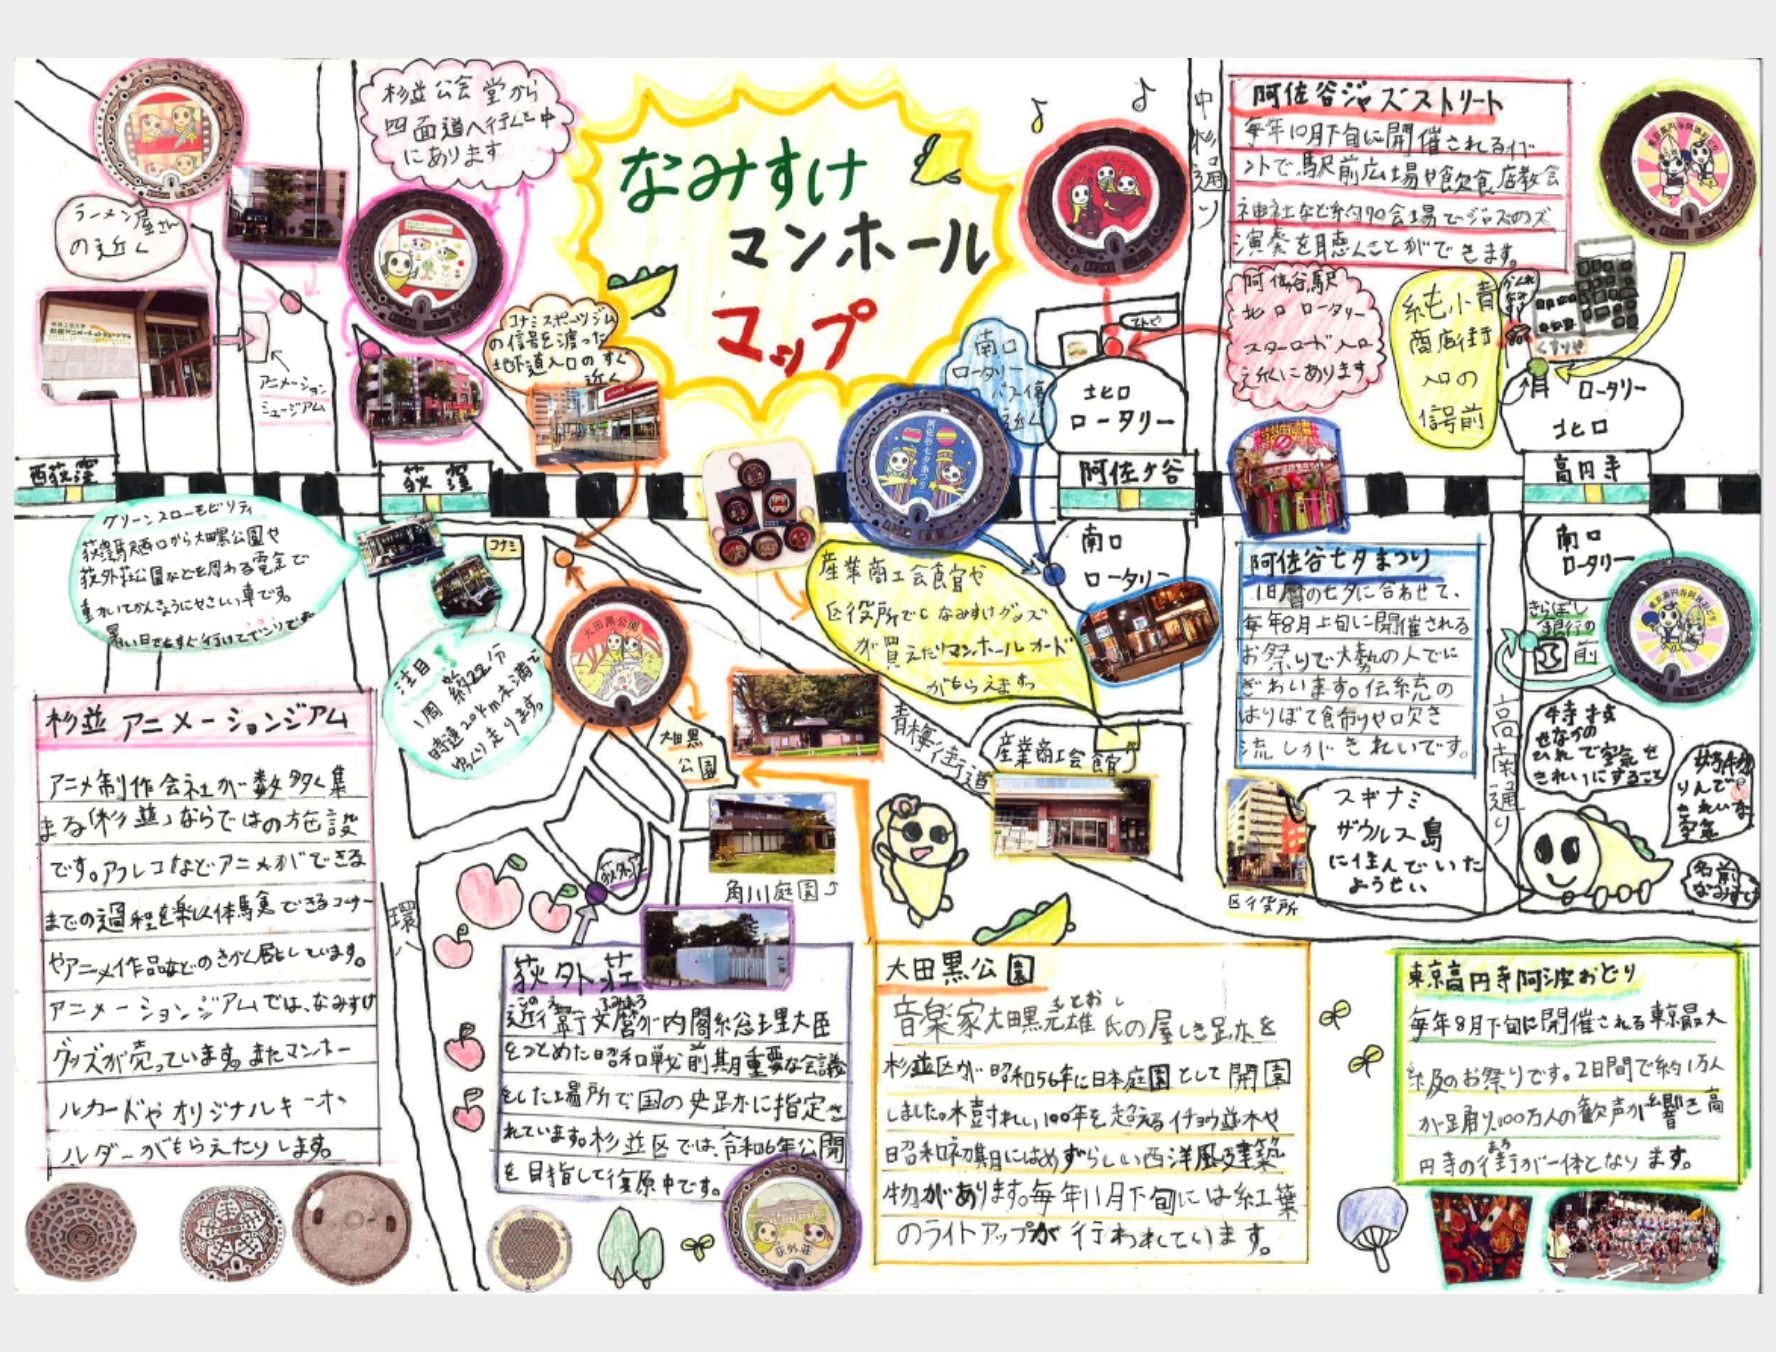 なみすけ
マンホール
マップ
杉並公会堂から
四面道へ行く途中
にあります
ラーメン屋さん
の近く
アニメーション
ミュージアム
コナミスポーツジム
の信号を渡った
地下道入口のすぐ
近く
南口
ロータリー
バス停
近く
中杉通り
てんや
北口
ロータリー
阿佐谷ジャズストリート
毎年10月下旬に開催されるイベ
ントで、駅前広場や飲食店、教会
神社など約70会場でジャズの
演奏を聴くことができます。
阿佐谷駅
北口 ロータリー
スターロード入口
近くにあります
純情商店街
入口の
信号前
くすりや
ロータリー
北口
西荻窪
荻窪
阿佐ヶ谷
高円寺
グリーンスローモビリティ
荻窪駅西口から大田黒公園や
荻外荘公園などを周わる電気で
動いてかんきょうにやさしい車です。
コナミ
注目
1周 約22分
時速20km未満で
ゆっくり走ります。
大田黒公園
産業商工会館や
区役所でもなみすけグッズ
が買えたりマンホールカード
がもらえます
南口
ロータリー
阿佐谷七夕まつり
旧暦の七夕に合わせて、
毎年8月上旬に開催される
お祭りで大勢の人でに
ぎわいます。伝統の
はりぼて飾りや吹き
流しがきれいです。
南口
ロータリー
きらぼし
銀行の
前
高南通り
青梅街道
産業商工会館
大田黒
公園
角川庭園
荻外荘
環八
区役所
スギナミ
ザウルス島
に住んでいた
ようせい
特技
せなかの
ひれで空気を
きれいにすること
好物
りんごと
きれいな
空気
名前
なみすけ
杉並アニメーションジアム
アニメ制作会社が数多く集
まる「杉並」ならではの施設
です。アフレコなどアニメができる
までの過程を楽しく体験できるコーナー
やアニメ作品などのきかく展をしています。
アニメーションジアムでは、なみすけ
グッズが売っています。またマンホー
ルカードやオリジナルキーホ
ルダーがもらえたりします。
荻外荘
このえ ふみまろ
近衞文麿が内閣総理大臣
をつとめた昭和戦前期重要な会議
をした場所で、国の史跡に指定さ
れています。杉並区では、令和6年公開
を目指して復原中です。
荻外荘
大田黒公園
もとおし
音楽家大田黒元雄氏の屋しき跡を
杉並区が昭和56年に日本庭園として開園
しました。樹れい100年を超えるイチョウ並木や
昭和初期にはめずらしい西洋風建築
物があります。毎年11月下旬には紅葉
のライトアップが行われています。
東京高円寺阿波おどり
毎年8月下旬に開催される東京最大
級のお祭りです。2日間で約1万人
が踊り、100万人の歓声が響き高
円寺の街が一体となります。